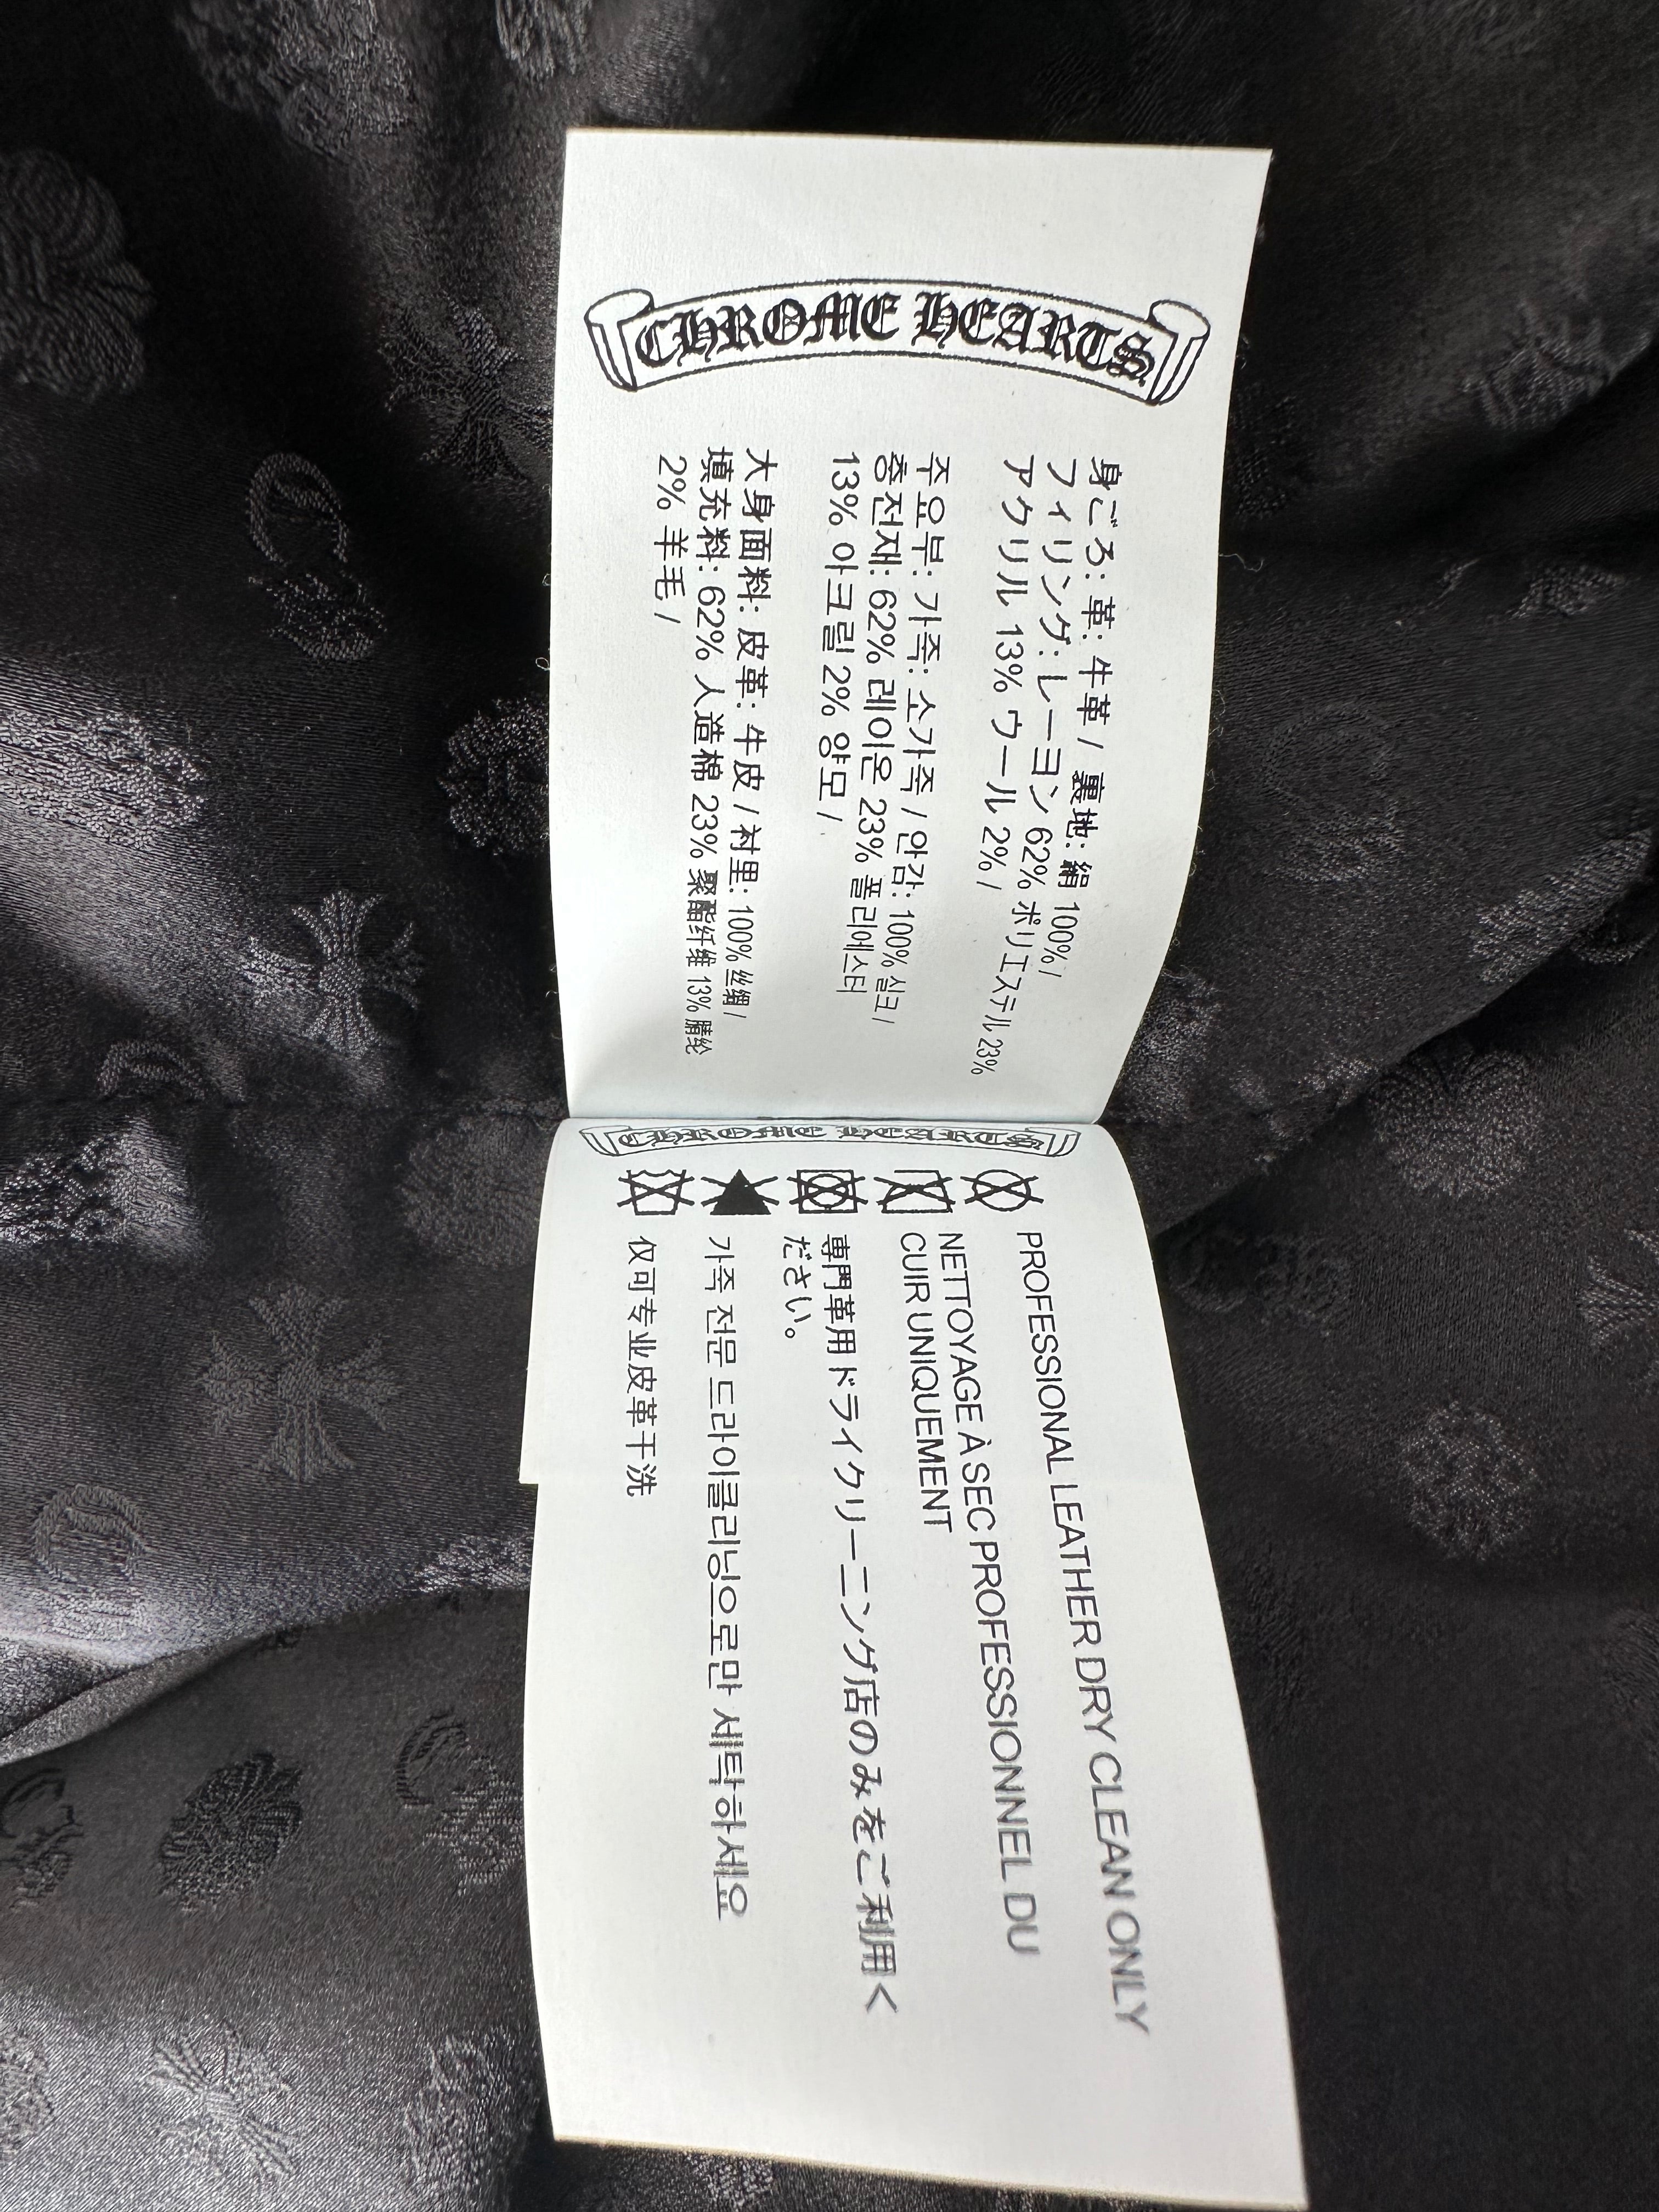 CHROME HEARTS
身ごろ: 革: 牛革 / 裏地: 絹 100% /
フィリング: レーヨン 62% ポリエステル 23%
アクリル 13% ウール 2% /
주요부: 가죽: 소가죽 / 안감: 100% 실크 /
충전재: 62% 레이온 23% 폴리에스터
13% 아크릴 2% 양모 /
大身面料: 皮革: 牛皮 / 衬里: 100% 丝绸 /
填充料: 62% 人造棉 23% 聚酯纤维 13% 腈纶
2% 羊毛 /
CHROME HEARTS
PROFESSIONAL LEATHER DRY CLEAN ONLY
NETTOYAGE À SEC PROFESSIONNEL DU
CUIR UNIQUEMENT
専門革用ドライクリーニング店のみをご利用く
ださい。
가죽 전문 드라이클리닝으로만 세탁하세요
仅可专业皮革干洗